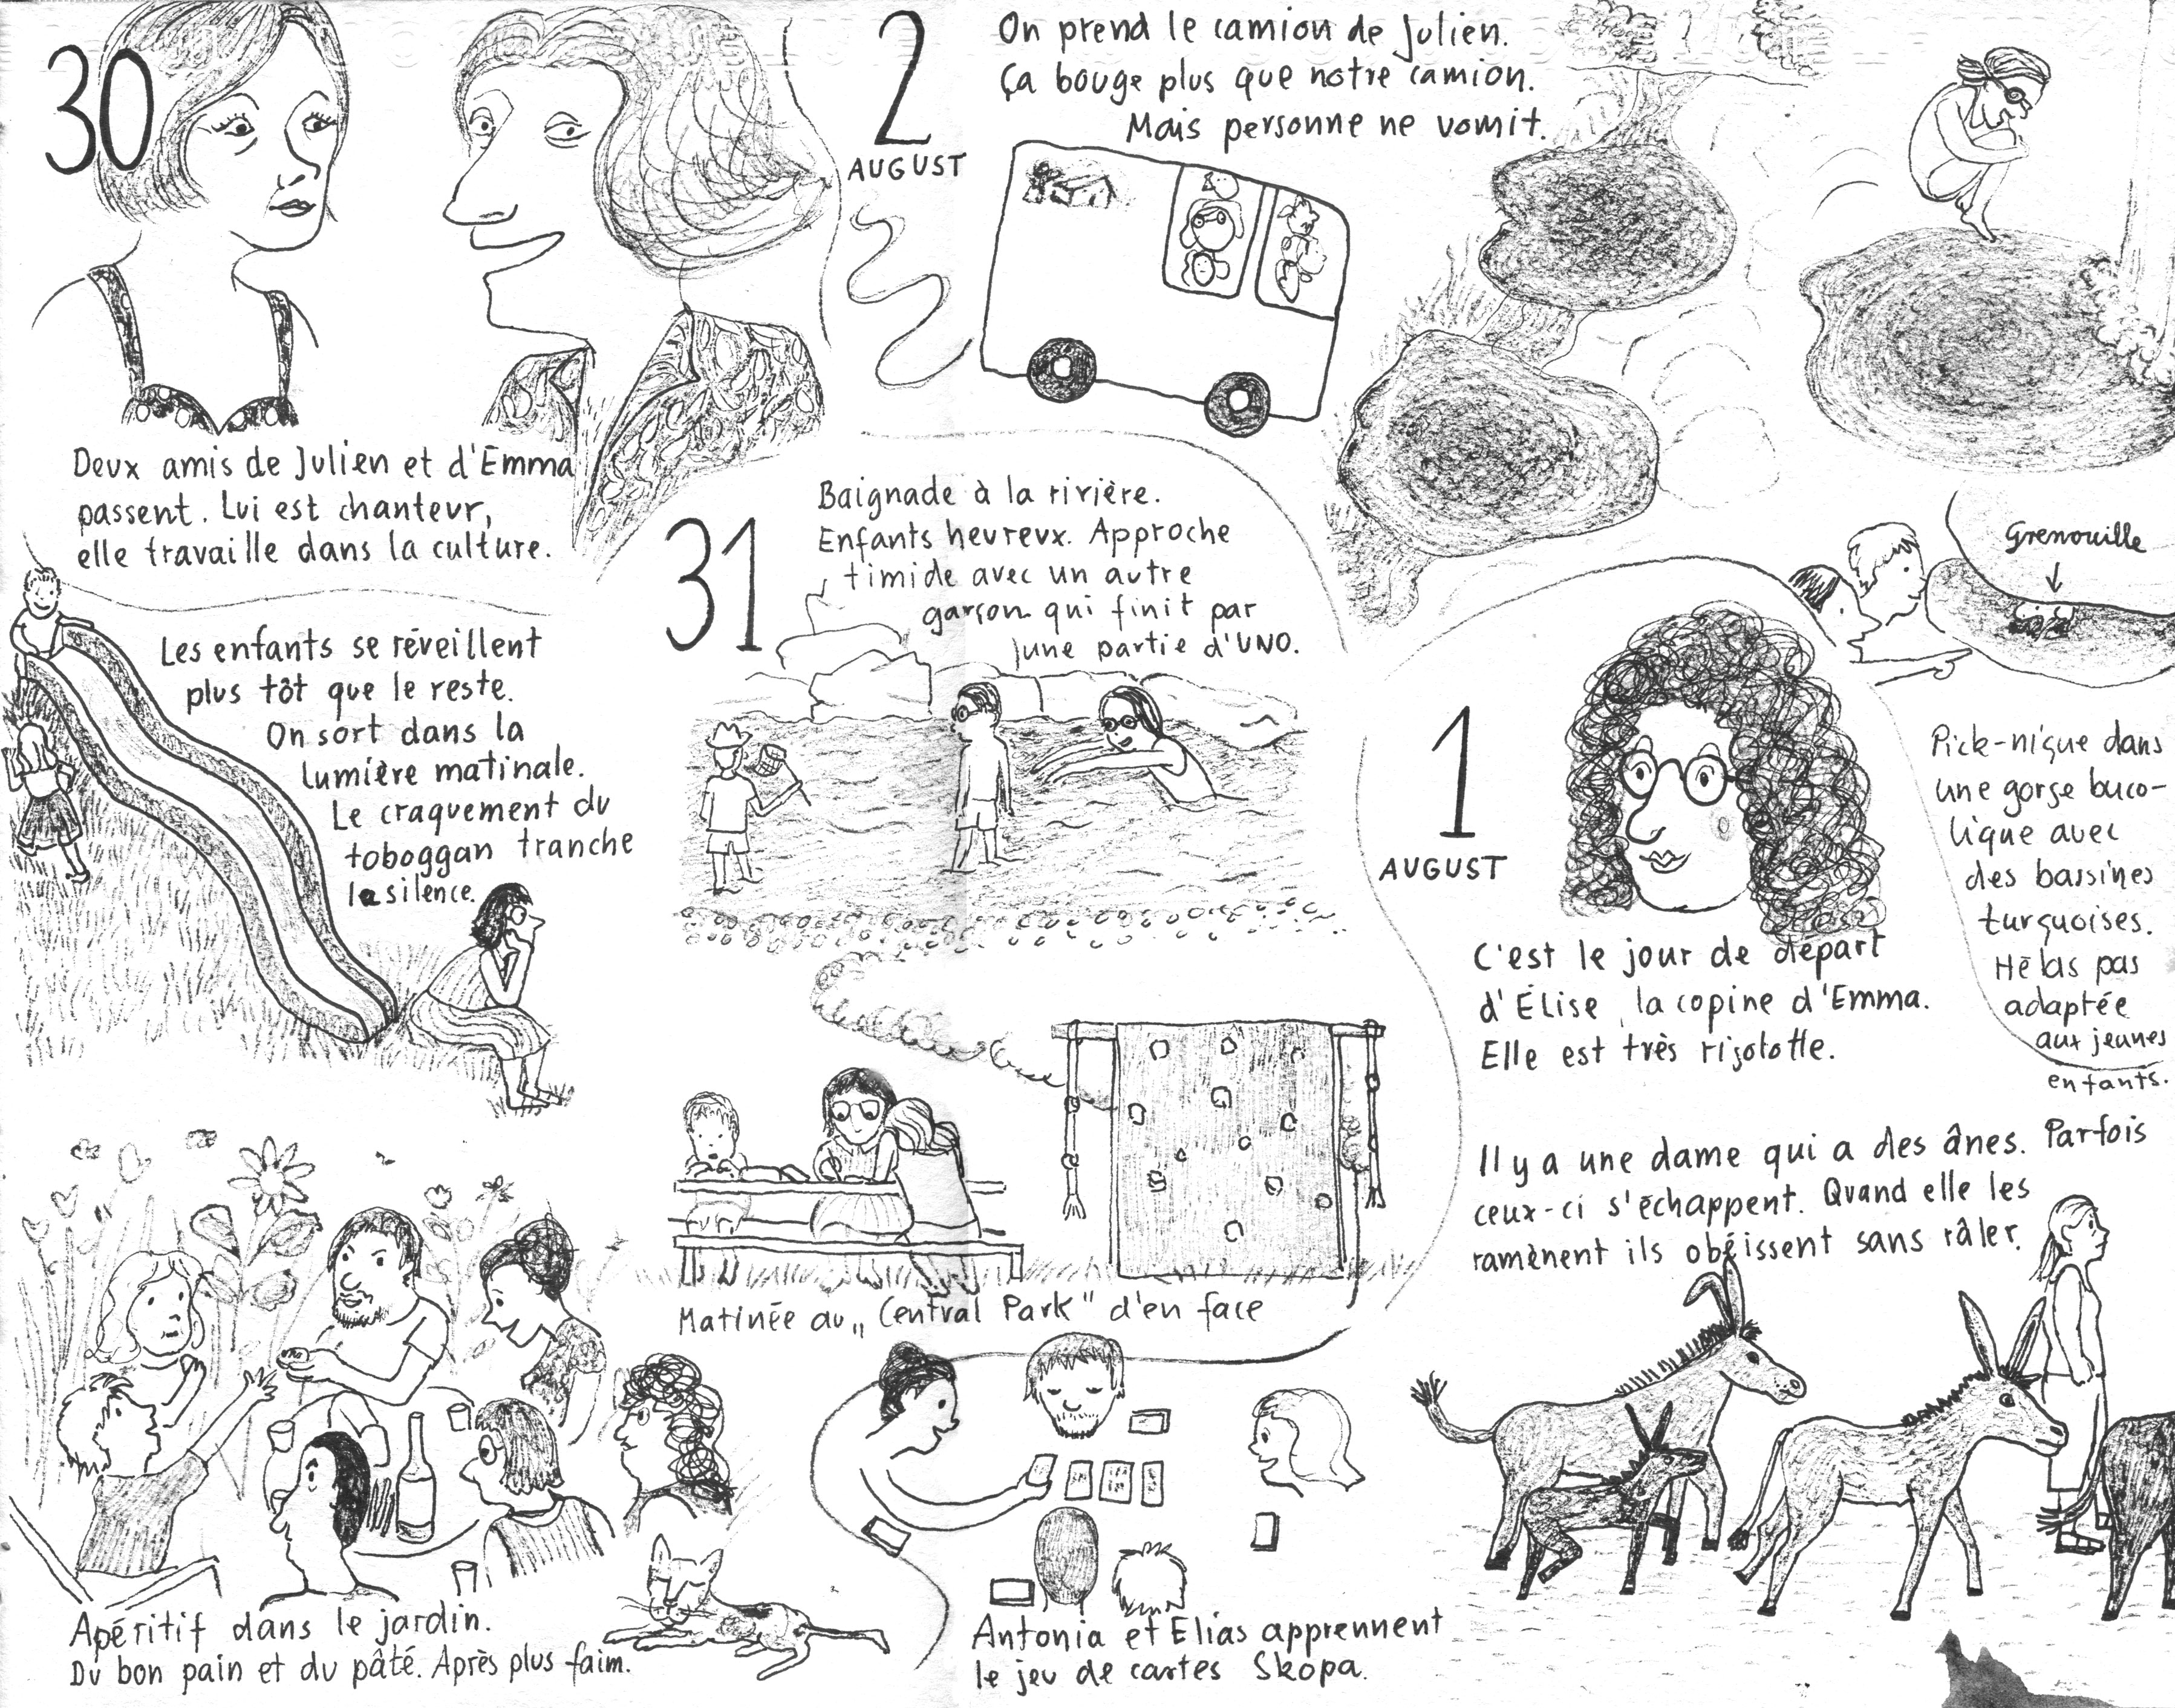 30
Deux amis de Julien et d'Emma
passent. Lui est chanteur,
elle travaille dans la culture.
Les enfants se réveillent
plus tôt que le reste.
On sort dans la
lumière matinale.
Le craquement du
toboggan tranche
le silence.
Apéritif dans le jardin.
Du bon pain et du pâté. Après plus faim.
31
Baignade à la rivière.
Enfants heureux. Approche
timide avec un autre
garçon qui finit par
une partie d'UNO.
Matinée au „Central Park" d'en face
Antonia et Elias apprennent
le jeu de cartes Skopa.
1
AUGUST
C'est le jour de départ
d'Élise, la copine d'Emma.
Elle est très rigolotte.
Il y a une dame qui a des ânes. Parfois
ceux-ci s'échappent. Quand elle les
ramènent ils obéissent sans râler.
2
AUGUST
On prend le camion de Julien.
Ça bouge plus que notre camion.
Mais personne ne vomit.
Grenouille
Pick-nique dans
une gorge buco-
lique avec
des bassines
turquoises.
Hélas pas
adaptée
aux jeunes
enfants.